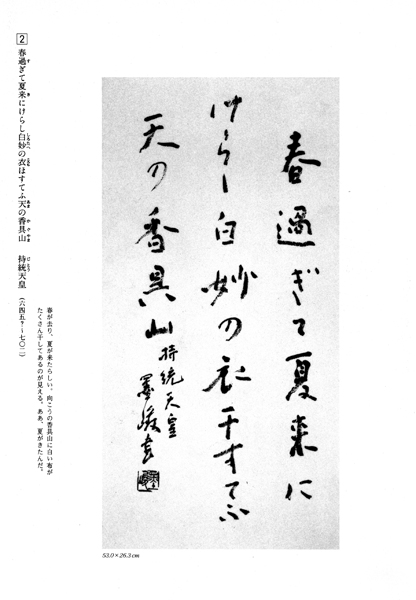 春過ぎて夏来に
けらし白妙の衣干すてふ
天の香具山
持統天皇
53.0×26.3cm
2
春過ぎて夏来にけらし白妙の衣ほすてふ天の香具山　持統天皇（六四五?～七〇二）
春が去り、夏が来たらしい。向こうの香具山に白い布が
たくさん干してあるのが見える。ああ、夏がきたんだ。